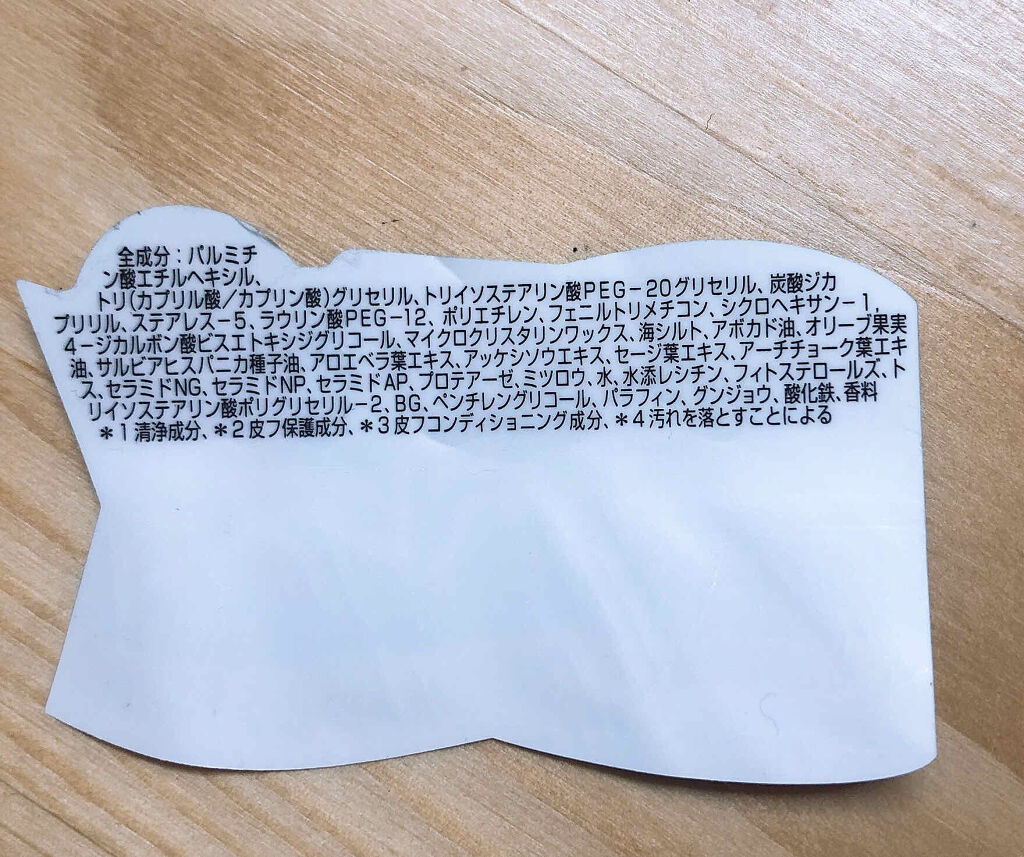 全成分：パルミチ
ン酸エチルヘキシル、
トリ(カプリル酸／カプリン酸)グリセリル、トリイソステアリン酸PEG－20グリセリル、炭酸ジカ
プリリル、ステアレス－5、ラウリン酸PEG－12、ポリエチレン、フェニルトリメチコン、シクロヘキサン－1,
4－ジカルボン酸ビスエトキシジグリコール、マイクロクリスタリンワックス、海シルト、アボカド油、オリーブ果実
油、サルビアヒスパニカ種子油、アロエベラ葉エキス、アッケシソウエキス、セージ葉エキス、アーチチョーク葉エキ
ス、セラミドNG、セラミドNP、セラミドAP、プロテアーゼ、ミツロウ、水、水添レシチン、フィトステロールズ、ト
リイソステアリン酸ポリグリセリル－2、BG、ペンチレングリコール、パラフィン、グンジョウ、酸化鉄、香料
＊1清浄成分、＊2皮フ保護成分、＊3皮フコンディショニング成分、＊4汚れを落とすことによる